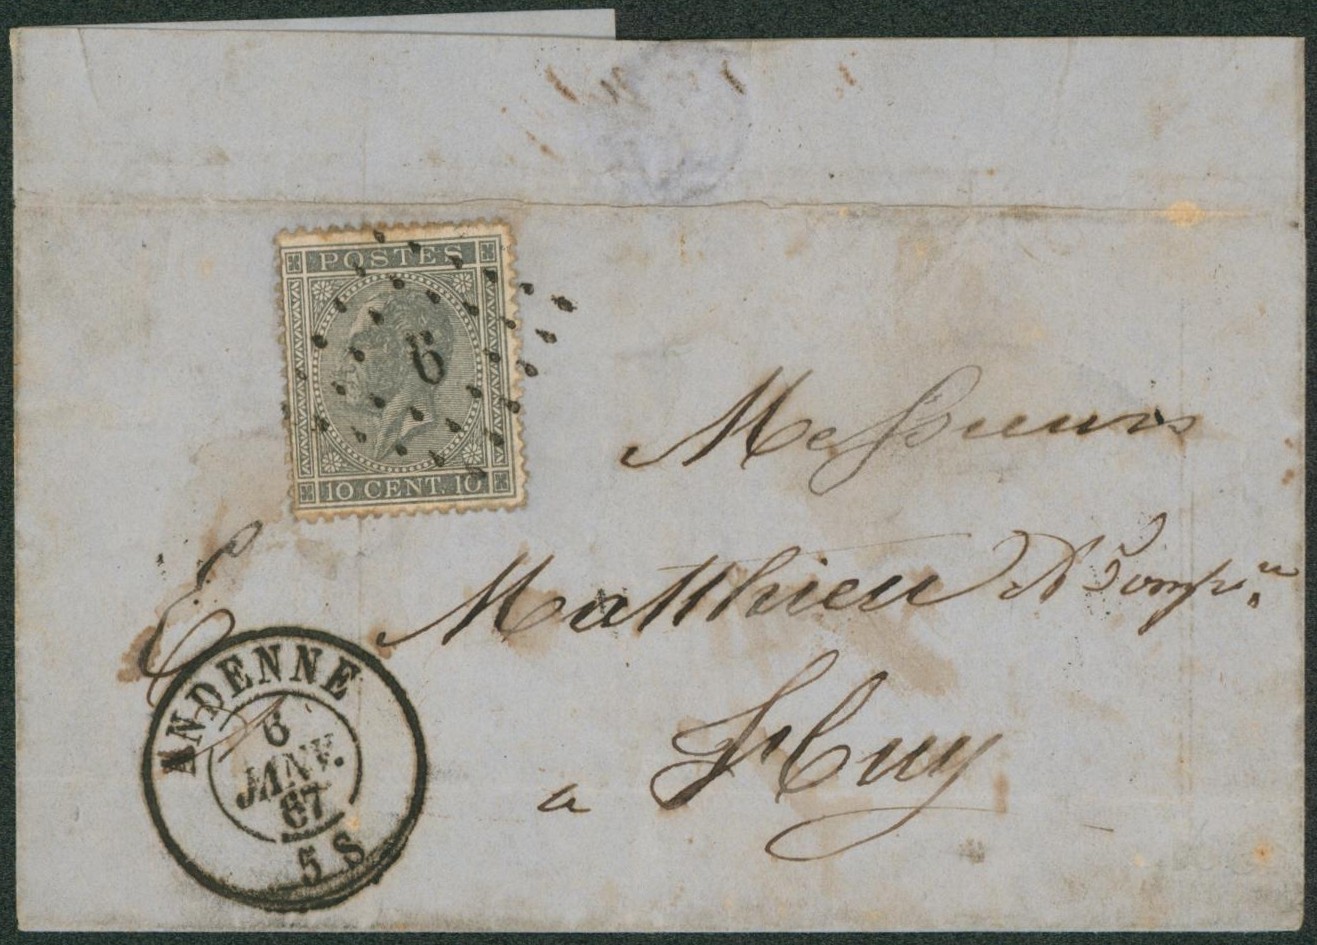 POSTES
6
10 CENT. 10
Messieurs
Matthieu & Comp.
a Huy
ANDENNE
6
JANV.
67
5 S